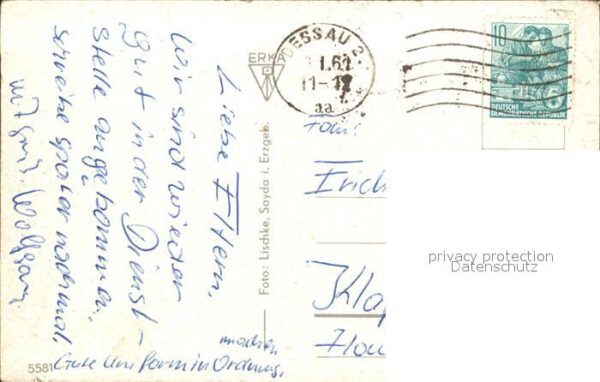 Liebe Eltern,
Wir sind wieder
gut in der Dienst-
stelle angekommen,
schreibe später nochmal,
mit Gruß. Wolfgang
machen
Gute in Ordnung,
5581
Foto: Lischke, Sayda i. Erzgeb.
ERKA
DESSAU 2
1.61
11-12
aa
10
DEUTSCHE
DEMOKRATISCHE REPUBLIK
Erich
Kla
privacy protection
Datenschutz